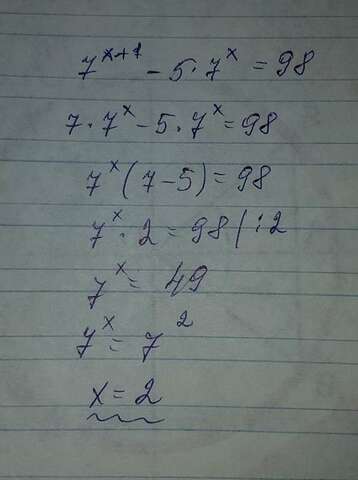 7ˣ⁺¹ - 5·7ˣ = 98
7·7ˣ - 5·7ˣ = 98
7ˣ(7-5) = 98
7ˣ·2 = 98 /:2
7ˣ = 49
7ˣ = 7²
x = 2